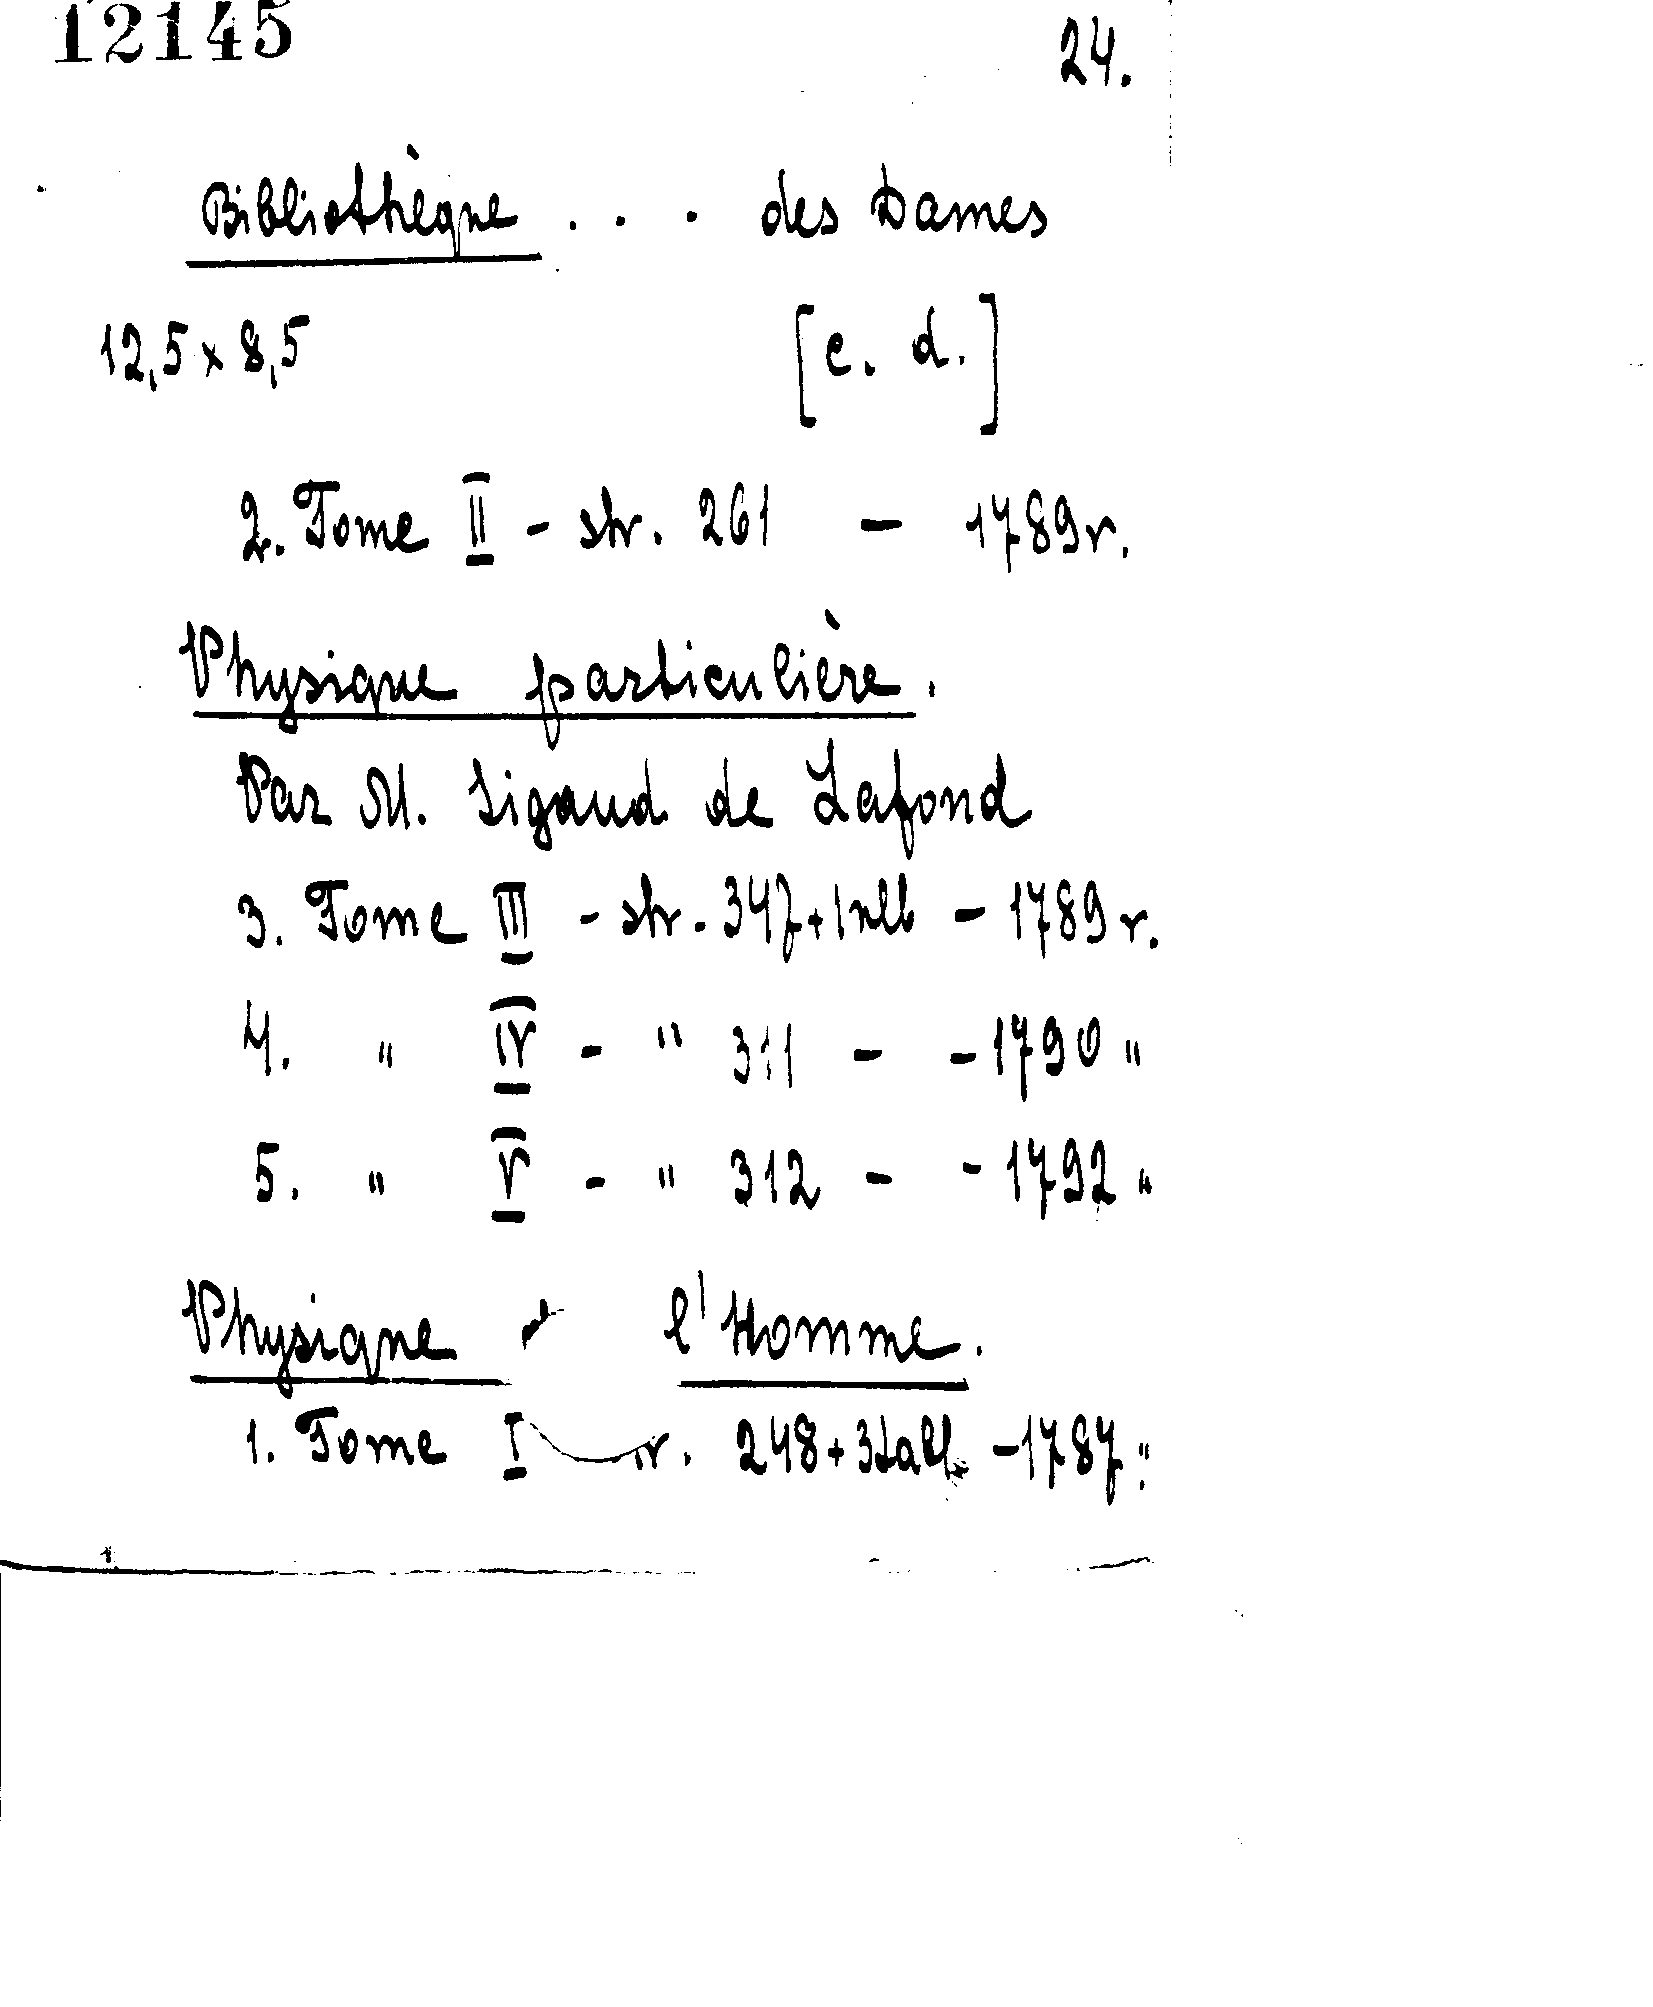 12145
24.
Bibliothèque . . . des Dames
12,5 x 8,5 [c. d.]
2. Tome II - str. 261 - 1789 r.
Physique particulière.
Par M. Sigaud de Lafond
3. Tome III - str. 347 + 1 nlb - 1789 r.
4. " IV - " 311 - - 1790 "
5. " V - " 312 - - 1792 "
Physique l'Homme.
1. Tome I r. 248 + 3 tabl. - 1787 "